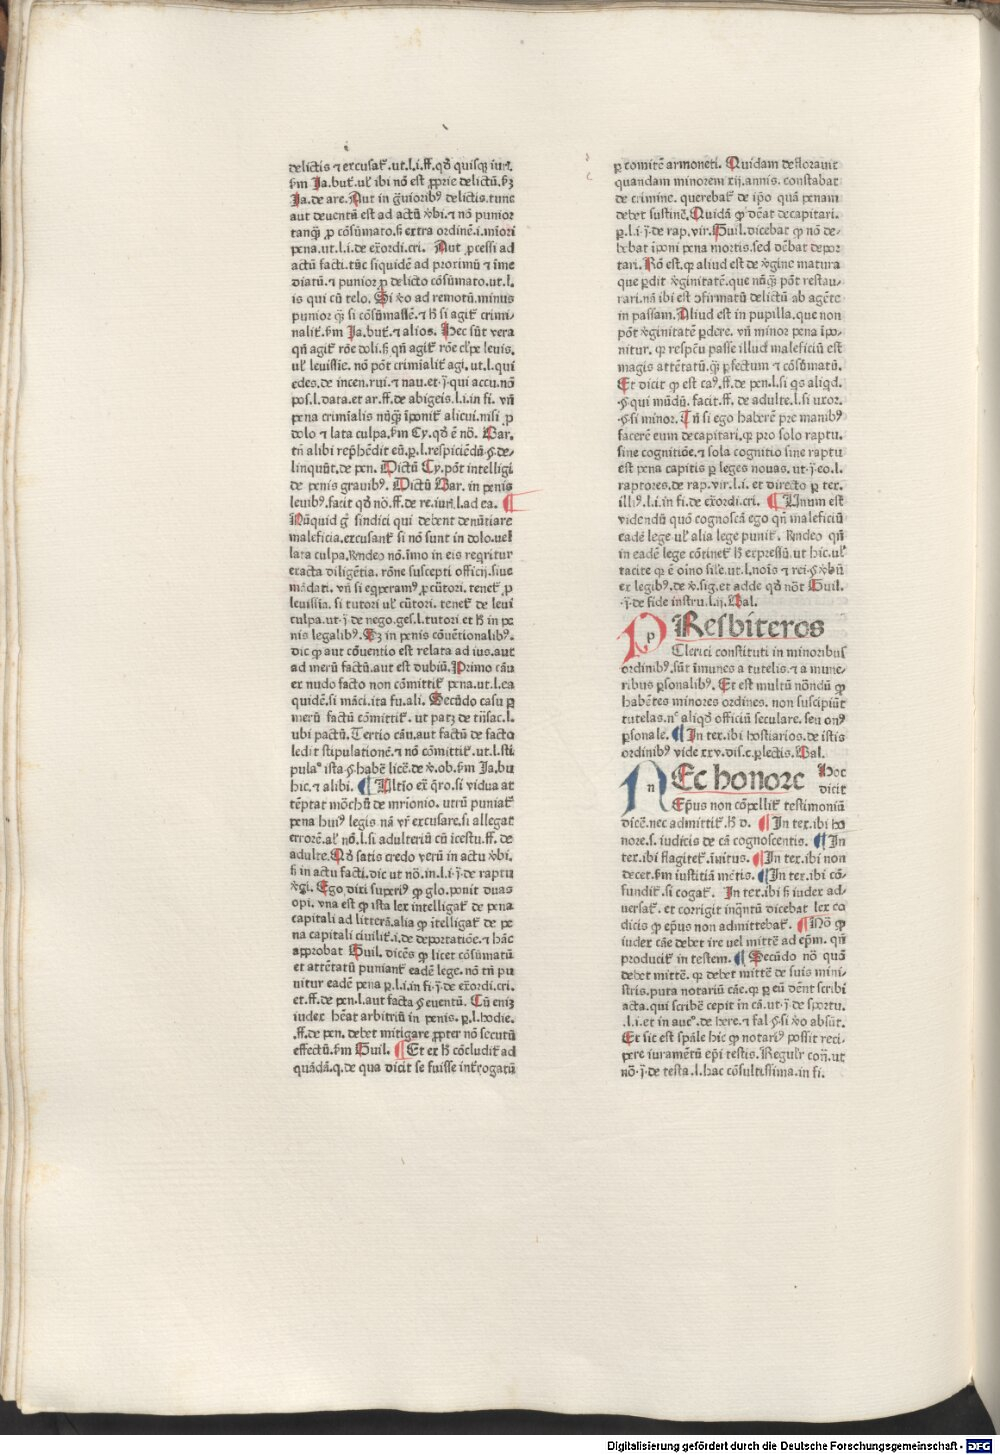 delictis ⁊ excusat᷑.ut.l.i.ff.qđ quisqꝫ iur̄.
ẜm Ja.but̄.ul̓ ibi nō est ꝓprie delictū.ẜꝫ
Ja.de are.Aut in ḡuioribꝰ delictis.tunc
aut deuentū est ad actū ꝟbi.⁊ nō punior
tanqͣꝫ ꝓ cōsūmato.ẜ extra ordinē.i.miōri
pena.ut.l.i.de ex̄ordi.cri. Aut ꝓcessi ad
actū facti.tūc siquidē ad proximū ⁊ īme
diatū.⁊ punior ꝓ delicto cōsūmato.ut.l.
is qui cū telo. Si ꝟo ad remotū.minus
punior qͣꝫ si cōsūmassē.⁊ ħ si agit᷑ crimi-
nalit᷑.ẜm Ja.but̄.⁊ alios. Hec sūt vera
qn̄ agit᷑ rōe doli.ẜ qn̄ agit᷑ rōe cl̓pe leuis.
ul̓ leuissie. nō pōt crimialit᷑ agi.ut.l.qui
edes.de incen.rui.⁊ nau.et.j̄.qui accu.nō
pos.l.data.et ar.ff.de abigeis.l.i.in fi. vn̄
pena crimīalis nūqͣꝫ īponit᷑ alicui.nisi ꝓ
dolo ⁊ lata culpa.ẜm Cy.qđ ē nō. Bar.
tn̄ alibi rep̄hēdit eū.ꝑ.l.respiciēdū.§.de-
linquūt.de pen. Dictū Cy.pōt intelligi
de penis grauibꝰ. Dictū Bar. in penis
leuibꝰ.facit qđ nō.ff.de re.iur̄.l.ad ea. ¶
Nūquid g̊ sindici qui debent denūtiare
maleficia.excusant᷑ si nō sunt in dolo.uel
lata culpa.Rn̄deo nō.īmo in eis reqrit᷑ur
exacta diligētia. rōne suscepti officij.siue
mādati. vn̄ si eqperamꝰ ꝓcūtori. tenet᷑ ꝓ
leuissīa. si tutori ul̓ cūtori. tenet᷑ de leui
culpa.ut.j̄.de nego.ges.l.tutori et ħ in pe
nis legalibꝰ. Sꝫ in penis cōuētionalibꝰ.
dic ꝙ aut cōuentio est relata ad ius.aut
ad merū factū.aut est dubiū.Primo cāu
ex nudo facto non cōmittit᷑ pena.ut.l.ea
quidē.si māci.ita fu.ali. Secūdo casu ꝑ
merū factū cōmittit᷑. ut patꝫ de tn̄sac.l.
ubi pactū.Tertio cāu.aut factū de facto
ledit stipulationē.⁊ nō cōmittit᷑.ut.l.sti
pulaᵒ ista.§.habē licē.de ꝟ.ob.ẜm Ja.bu
hic.⁊ alibi. ¶ Ultīo ex̄ q̄ro.si vidua at
tēptat mōchū de mrīonio. utrū puniat᷑
pena huiꝰ legis nā vr̄ excusare.si allegat
errorē.al̓ nō.l.si adulteriū cū īcestu.ff.de
adulte.Nō satis credo verū in actu ꝟbi.
ẜ in actu facti.dic ut nō.in.l.i.j̄.de raptu
ꝟgi. Ego dixi superiꝰ ꝙ glo.ponit duas
opi. vna est ꝙ ista lex intelligat᷑ de pena
capitali ad litterā.alia ꝙ ītelligat᷑ de pe
na capitali ciuilit᷑.i.de deportatiōe.⁊ hāc
approbat Guil. dicēs ꝙ licet cōsūmatū
et attētatū puniant᷑ eadē lege. nō tn̄ pu
nitur eadē pena ꝑ.l.i.in fi.j̄.de ex̄ordi.cri.
et.ff.de pen.l.aut facta.§.euentū. Cū eniꝫ
iudex hēat arbitriū in penis. ꝑ.l.hodie.
.ff.de pen. debet mitigare ꝓpter nō secutū
effectū.ẜm Guil. ¶ Et ex ħ cōcludit᷑ ad
quādā.q.de qua dicit se fuisse int̄rogatū
ꝑ comitē armoneti. Quidam deflorauit
quandam minorem xij.annis. constabat
de crimine. querebat᷑ de ip̄o quā penam
debet sustinē.Quidā ꝙ dēat decapitari.
ꝑ.l.i.j̄.de rap.vir.Guil.dicebat ꝙ nō de-
bebat īponi pena mortis.sed dēbat depor
tari. Rō est.qꝛ aliud est de ꝟgine matura
que ꝑdit ꝟginitatē.que nūqͣꝫ pōt restau-
rari.nā ibi est ↄfirmatū delictū ab agēte
in passam. Aliud est in pupilla.que non
pōt ꝟginitatē ꝑdere. vn̄ minor pena īpo-
nitur. qꝛ respcū passe illud maleficiū est
magis attētatū.qͣꝫ ꝑfectum ⁊ cōsūmatū.
Et dicit ꝙ est caꝰ.ff.de pen.l.si qͥs aliqd.
.§.qui mūdū. facit.ff. de adulte.l.si uxor.
.§.si minor. Tn̄ si ego haberē pre manibꝰ
facerē eum decapitari.qꝛ pro solo raptu.
sine cognitiōe.⁊ sola cognitio sine raptu
est pena capitis ꝑ leges nouas. ut.j̄.eo.l.
raptores.de rap.vir.l.i. et directo ꝑ tex.
illiꝰ.l.i.in fi.de ex̄ordi.cri. ¶ Unum est
videndū quō cognoscā ego qn̄ maleficiū
eadē lege ul̓ alia lege punit᷑. Rn̄deo qn̄
in eadē lege cōtinet᷑ ħ expressū.ut hic.ul̓
tacite qꝛ ē oīno sil̓e.ut.l.noīs ⁊ rei.§.ꝟbū
ex legibꝰ.de ꝟ.sig.et adde qđ nōt Guil.
.j̄.de fide instru.l.ij. Bal.
PResbiteros
Clerici constituti in minoribus
ordinibꝰ.sūt īmunes a tutelis.⁊ a mune-
ribus ꝑsonalibꝰ. Et est multū nōndū ꝙ
habētes minores ordines. non suscipiūt
tutelas.nᶜ aliqđ officiū seculare. seu onꝰ
ꝑsonale. ¶ In tex.ibi hostiarios.de istis
ordinibꝰ vide xxv.dis.c.ꝑlectis. Bal.
NEc honore Hoc
dicit
Ep̄us non cōpellit᷑ testimoniū
dicē.nec admittit᷑.ħ d. ¶ In tex.ibi ho
nore.s. iudicis de cā cognoscentis. ¶ In
tex.ibi flagitet᷑.īuitus. ¶ In tex.ibi non
decet.ẜm iustitiā mētis. ¶ In tex.ibi cō-
fundit᷑.si cogat᷑. In tex.ibi ẜ iudex ad-
uersat᷑. et corrigit inqͣntū dicebat lex co
dicis ꝙ ep̄us non admittebat᷑. ¶ Nō ꝙ
iudex cāe debet ire uel mittē ad ep̄m. qn̄
producit᷑ in testem. ¶ Secūdo nō quā
debet mittē. qꝛ debet mittē de suis mini-
stris.puta notariū cāe.qꝛ ꝑ eū dēnt scribi
acta.qui scribē cepit in cā.ut.j̄.de sportu.
.l.i.et in aucᵒ.de here.⁊ fal.§.si ꝟo absūt.
Et sic est sp̄ale hic ꝙ notariꝰ possit reci-
pere iuramētū ep̄i testis. Regulr̄ con̄.ut
nō.j̄.de testa.l.hac cōsultissima.in fi.
Digitalisierung gefördert durch die Deutsche Forschungsgemeinschaft - DFG